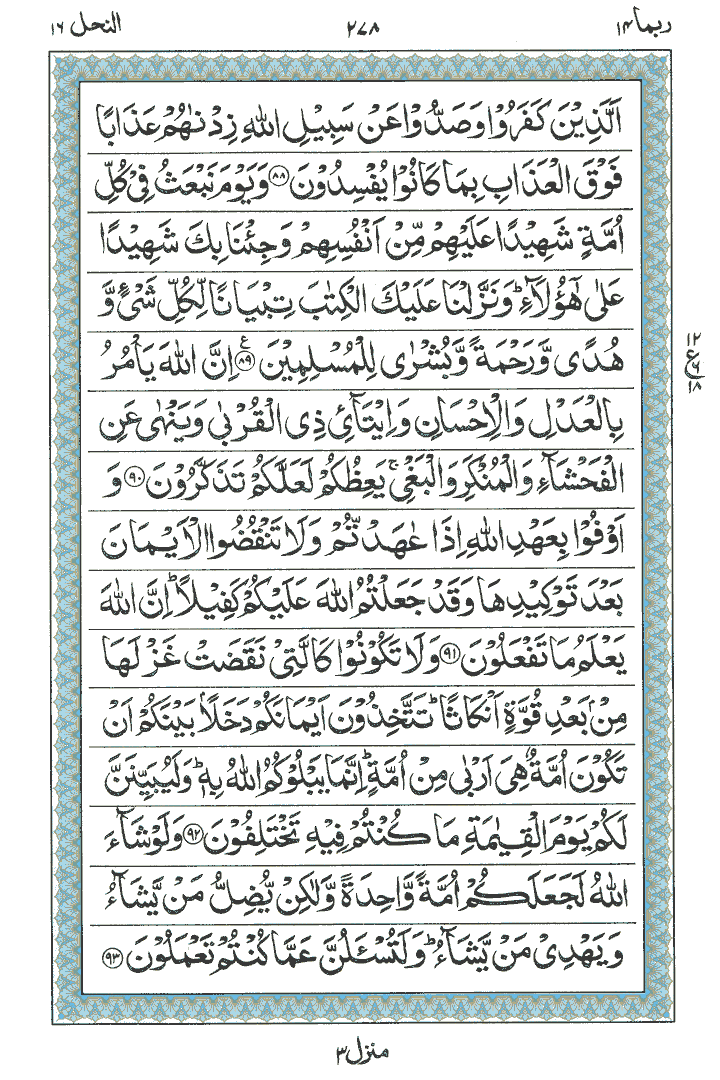 ربما ۱۴ ۲۷۸ النحل ۱۶
اَلَّذِیْنَ كَفَرُوْا وَصَدُّوْا عَنْ سَبِیْلِ اللّٰهِ زِدْنٰهُمْ عَذَابًا
فَوْقَ الْعَذَابِ بِمَا كَانُوْا یُفْسِدُوْنَ ﴿۸۸﴾ وَیَوْمَ نَبْعَثُ فِیْ كُلِّ
اُمَّةٍ شَهِیْدًا عَلَیْهِمْ مِّنْ اَنْفُسِهِمْ وَجِئْنَا بِكَ شَهِیْدًا
عَلٰی هٰۤؤُلَآءِ ؕ وَنَزَّلْنَا عَلَیْكَ الْكِتٰبَ تِبْیَانًا لِّكُلِّ شَیْءٍ وَّ
هُدًی وَّرَحْمَةً وَّبُشْرٰی لِلْمُسْلِمِیْنَ ﴿۸۹﴾ ع اِنَّ اللّٰهَ یَاْمُرُ
۱۲
ع ۶
۱۸
بِالْعَدْلِ وَالْاِحْسَانِ وَاِیْتَآئِ ذِی الْقُرْبٰی وَیَنْهٰی عَنِ
الْفَحْشَآءِ وَالْمُنْكَرِ وَالْبَغْیِ ۚ یَعِظُكُمْ لَعَلَّكُمْ تَذَكَّرُوْنَ ﴿۹۰﴾ وَ
اَوْفُوْا بِعَهْدِ اللّٰهِ اِذَا عٰهَدْتُّمْ وَلَا تَنْقُضُوا الْاَیْمَانَ
بَعْدَ تَوْكِیْدِهَا وَقَدْ جَعَلْتُمُ اللّٰهَ عَلَیْكُمْ كَفِیْلًا ؕ اِنَّ اللّٰهَ
یَعْلَمُ مَا تَفْعَلُوْنَ ﴿۹۱﴾ وَلَا تَكُوْنُوْا كَالَّتِیْ نَقَضَتْ غَزْلَهَا
مِنْۢ بَعْدِ قُوَّةٍ اَنْكَاثًا ؕ تَتَّخِذُوْنَ اَیْمَانَكُمْ دَخَلًۢا بَیْنَكُمْ اَنْ
تَكُوْنَ اُمَّةٌ هِیَ اَرْبٰی مِنْ اُمَّةٍ ؕ اِنَّمَا یَبْلُوْكُمُ اللّٰهُ بِهٖ ؕ وَلَیُبَیِّنَنَّ
لَكُمْ یَوْمَ الْقِیٰمَةِ مَا كُنْتُمْ فِیْهِ تَخْتَلِفُوْنَ ﴿۹۲﴾ وَلَوْ شَآءَ
اللّٰهُ لَجَعَلَكُمْ اُمَّةً وَّاحِدَةً وَّلٰكِنْ یُّضِلُّ مَنْ یَّشَآءُ
وَیَهْدِیْ مَنْ یَّشَآءُ ؕ وَلَتُسْـَٔلُنَّ عَمَّا كُنْتُمْ تَعْمَلُوْنَ ﴿۹۳﴾
منزل ۳